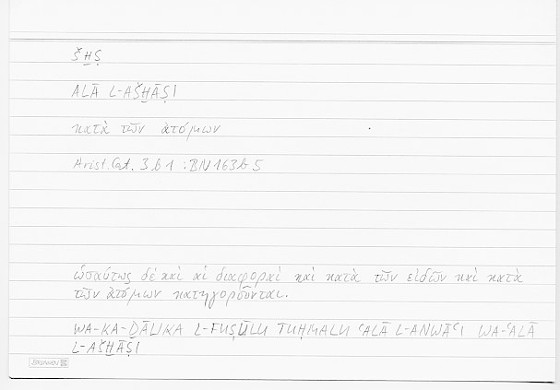 ŠḪṢ
ALĀ L-AŠḪĀṢI
κατὰ τῶν ἀτόμων
Arist. Cat. 3 b 1 : BN 163 b 5
ὡσαύτως δὲ καὶ αἱ διαφοραὶ καὶ κατὰ τῶν εἰδῶν καὶ κατὰ
τῶν ἀτόμων κατηγοροῦνται.
WA-KA-ḎĀLIKA L-FUṢŪLU TUḤMALU ʿALĀ L-ANWĀʿI WA-ʿALĀ
L-AŠḪĀṢI